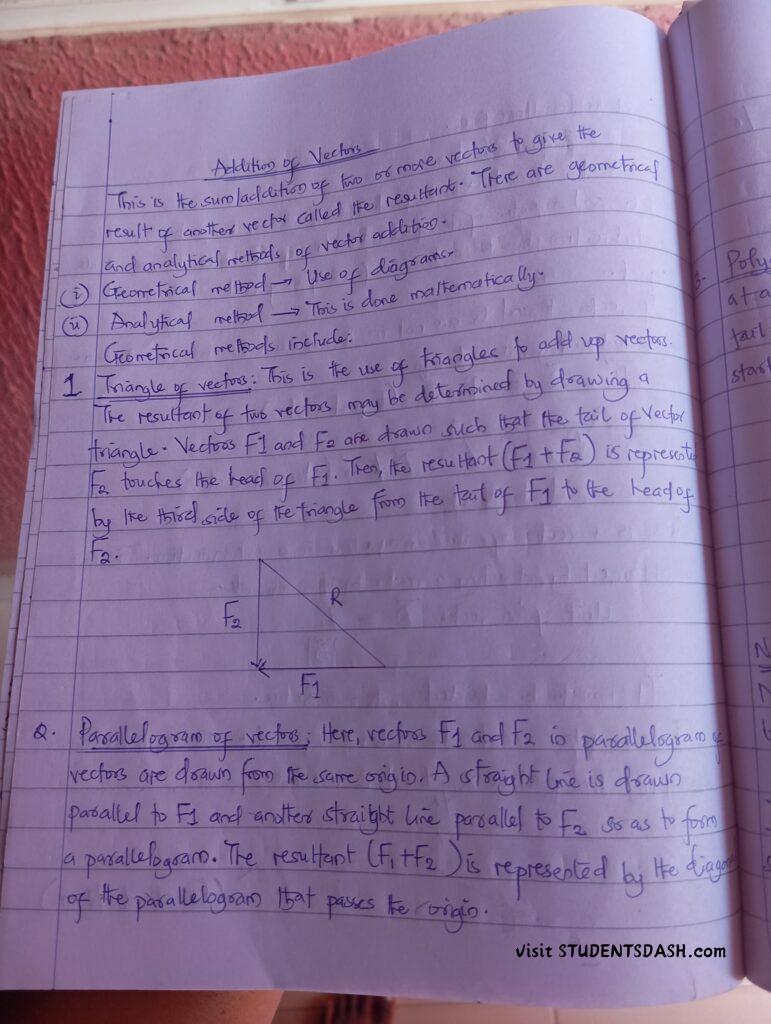 Addition of Vectors
This is the sum/addition of two or more vectors to give the
result of another vector called the resultant. There are geometrical
and analytical methods of vector addition.
(i) Geometrical method → Use of diagrams.
(ii) Analytical method → This is done mathematically.
Geometrical methods include:
1 Triangle of vectors: This is the use of triangles to add up vectors.
The resultant of two vectors may be determined by drawing a
triangle. Vectors F1 and F2 are drawn such that the tail of vector
F2 touches the head of F1. Then, the resultant (F1+F2) is represente
by the third side of the triangle from the tail of F1 to the head of
F2.
R
F2
F1
2. Parallelogram of vectors; Here, vectors F1 and F2 in parallelogram of
vectors are drawn from the same origin. A straight line is drawn
parallel to F1 and another straight line parallel to F2 so as to form
a parallelogram. The resultant (F1+F2) is represented by the diago
of the parallelogram that passes the origin.
Poly
at-a
tail
start
visit STUDENTSDASH.com